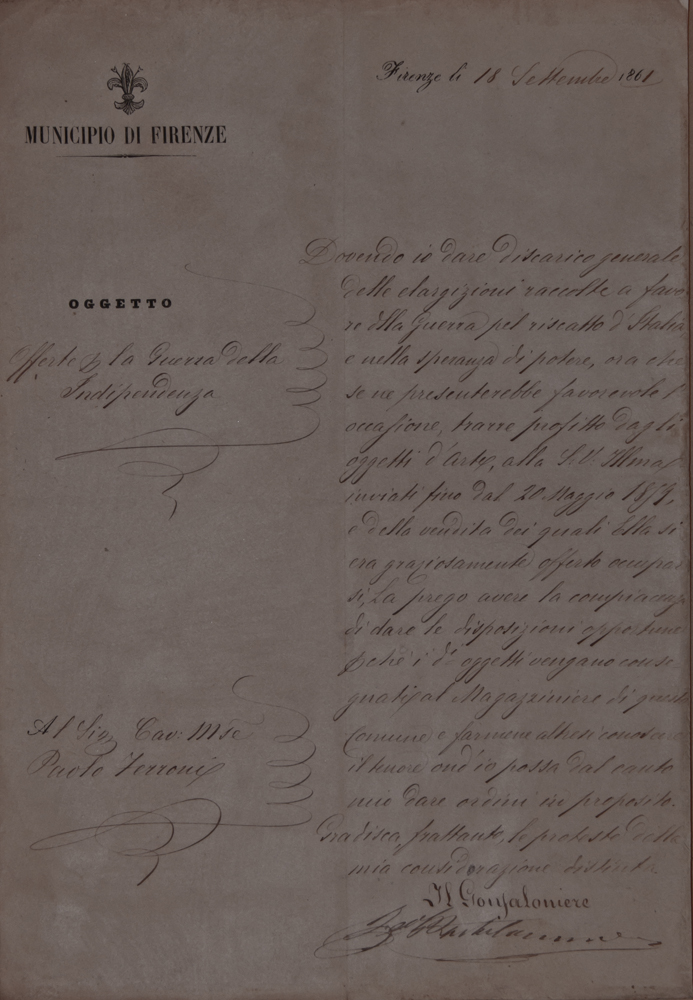 Firenze li 18 Settembre 1861
MUNICIPIO DI FIRENZE
OGGETTO
Offerte p la Guerra della
Indipendenza
Dovendo io dare discarico generale
delle elargizioni raccolte a favo
re della Guerra pel riscatto d'Italia
e nella speranza di potere, ora che
se ne presenterebbe favorevole l'
occasione, trarre profitto dagli
oggetti d'Arte, alla S. V. Illma
inviati fino dal 20 Maggio 1859,
e della vendita dei quali Ella si
era graziosamente offerto occupar
si, La prego avere la compiacenza
di dare le disposizioni opportune
pchè i di oggetti vengano conse
gnati al Magazziniere di questa
Comune e farmene altresì conoscere
il tenore ond'io possa dal canto
mio dare ordini in proposito.
Gradisca, frattanto, le proteste della
mia considerazione distinta
Al Sig Cav: Mse
Paolo Ferroni
Il Gonfaloniere